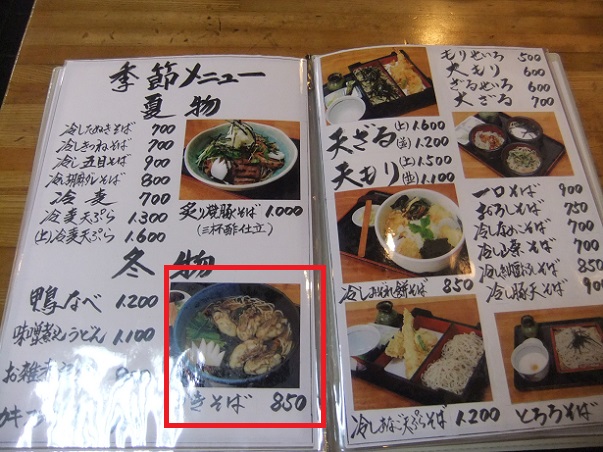 季節メニュー
夏物
冷したぬきそば 700
冷しきつねそば 700
冷し五目そば 900
冷し胡麻ダレそば 800
冷麦 700
冷麦天ぷら 1.300
(上)冷麦天ぷら 1.600
炙り焼豚そば 1.000
(三杯酢仕立)
冬物
鴨なべ 1.200
味噌煮込うどん 1.100
お雑煮
カキ
きそば 850
もりせいろ 500
大もり 600
ざるせいろ 600
大ざる 700
天ざる (上) 1.600
(並) 1.200
天もり (上) 1.500
(並) 1.100
一口そば 900
おろしそば 750
冷しなめこそば 700
冷し山菜そば 700
冷し
そば 850
冷し豚天そば 900
冷しみぞれ餅そば 850
冷しあなご天ぷらそば 1.200
とろろそば